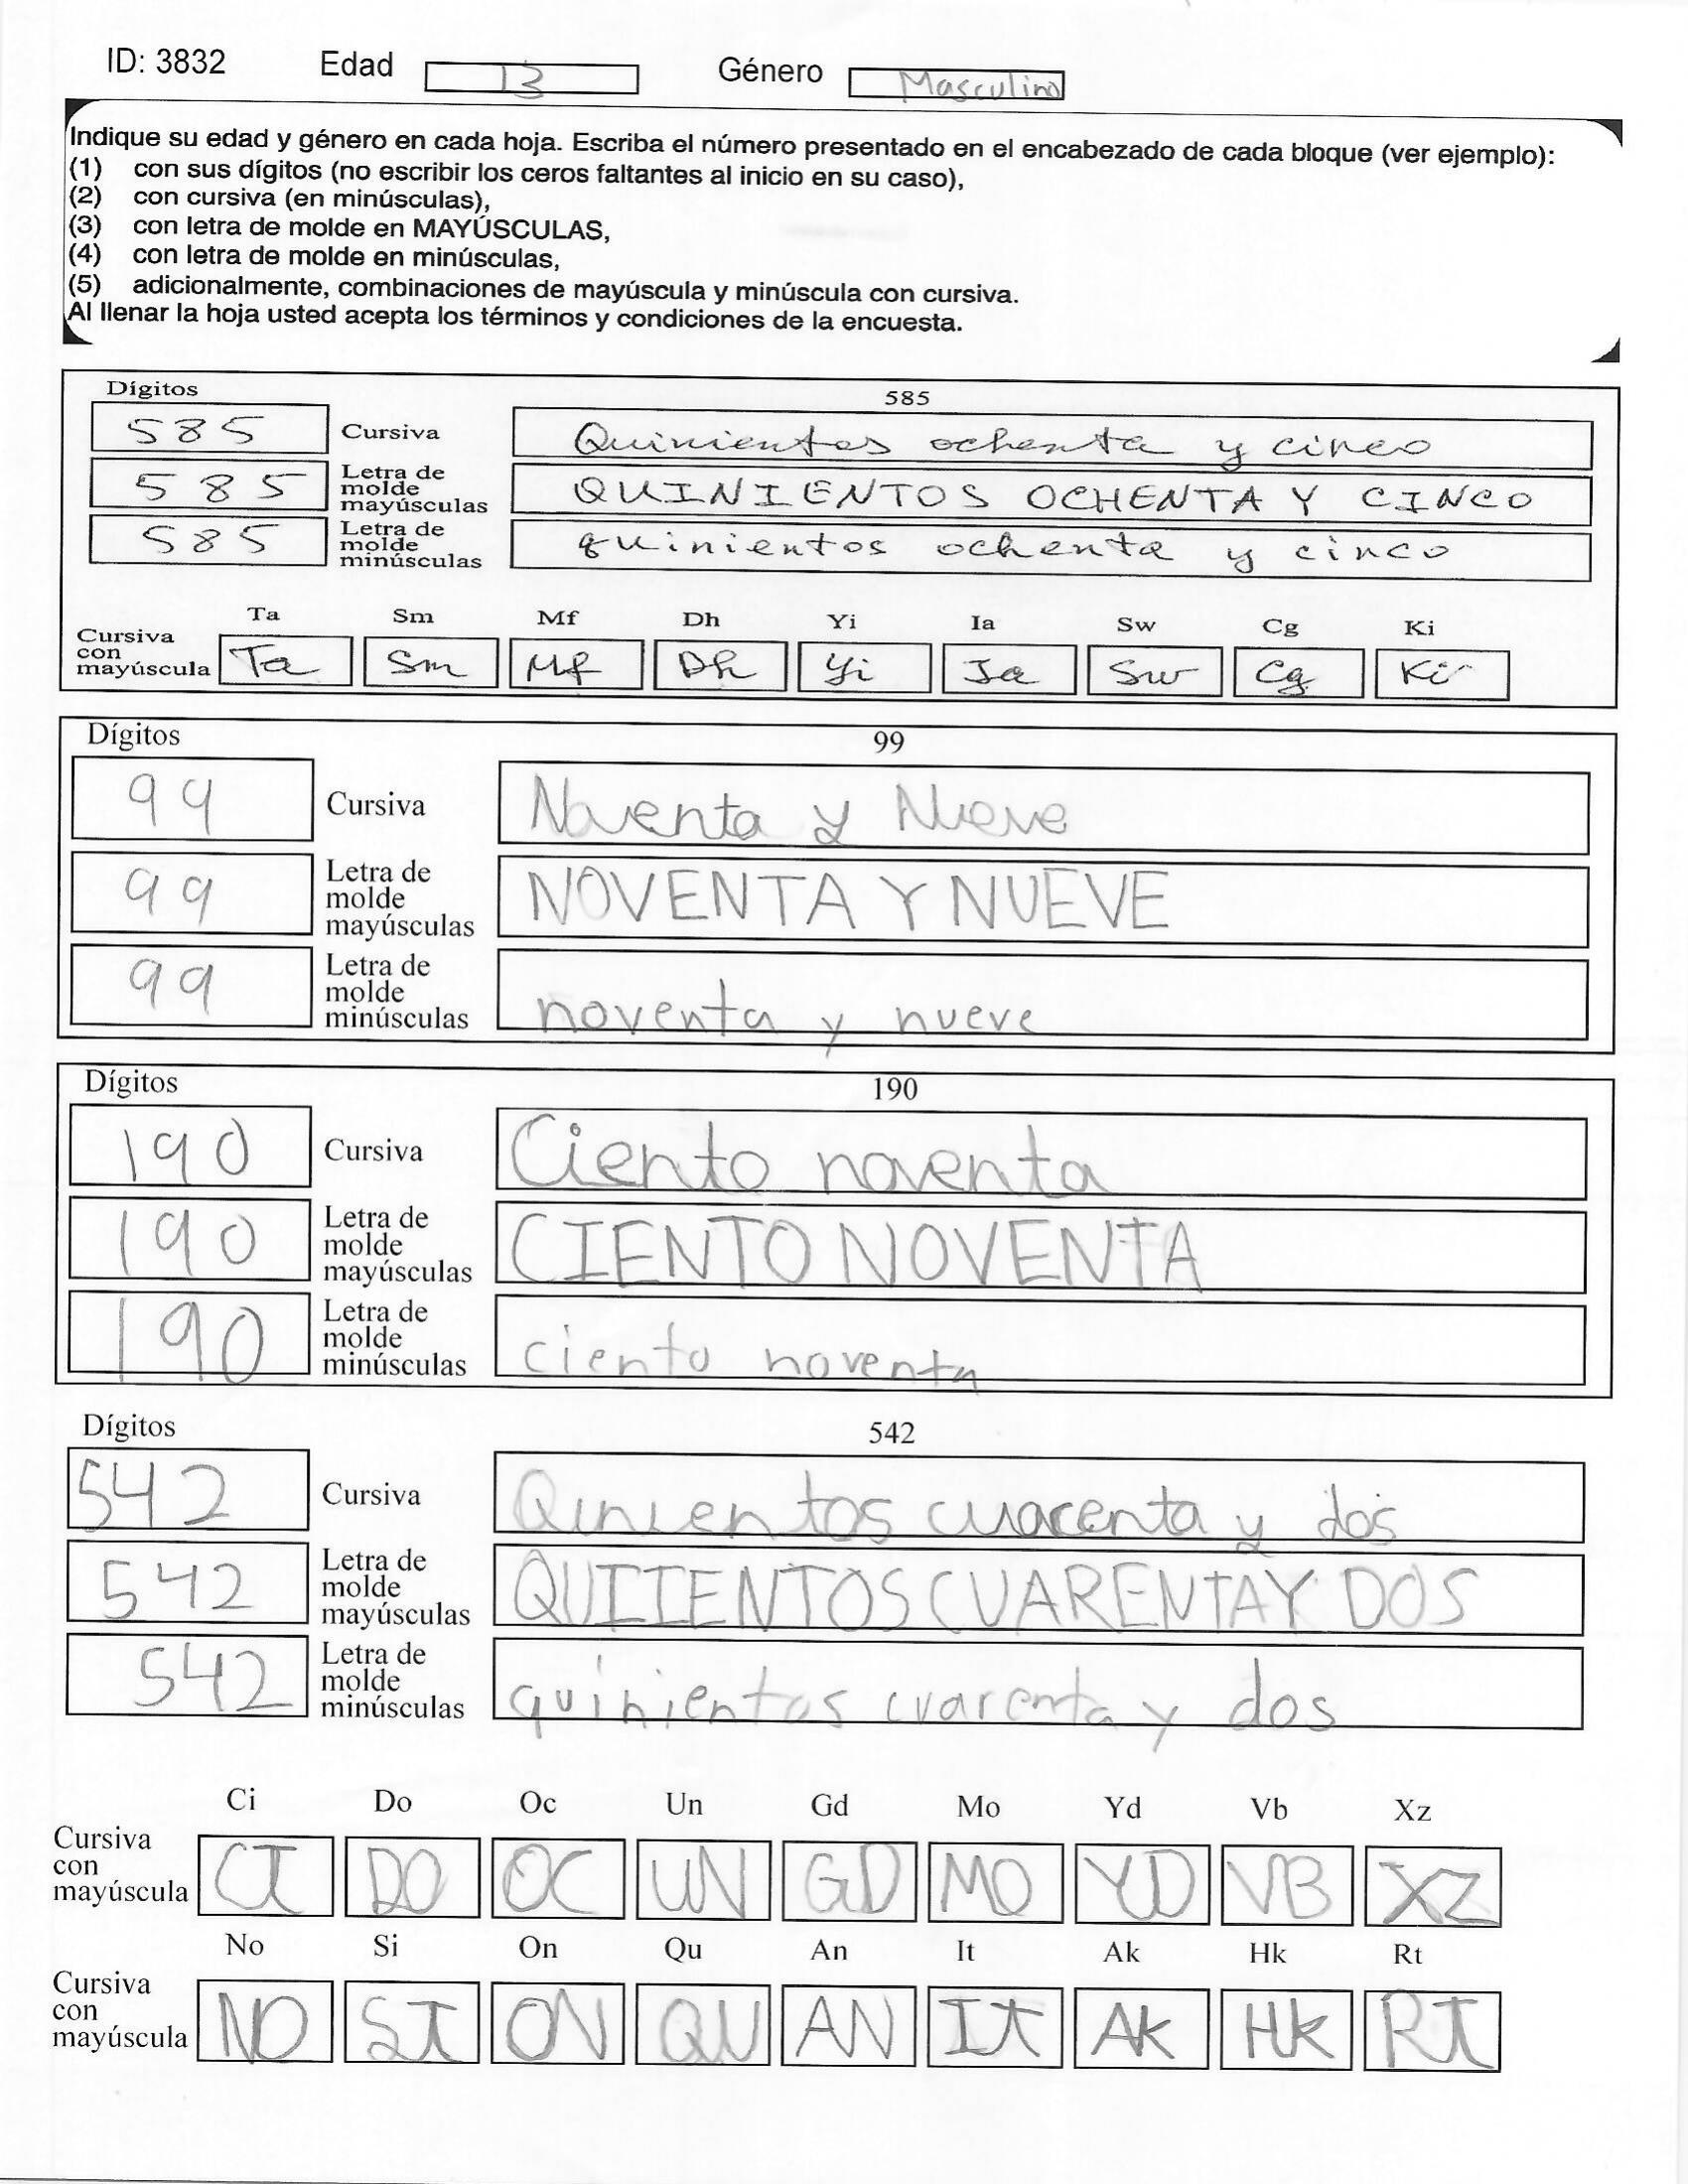 ID: 3832 Edad 13 Género Masculino
Indique su edad y género en cada hoja. Escriba el número presentado en el encabezado de cada bloque (ver ejemplo):
(1) con sus dígitos (no escribir los ceros faltantes al inicio en su caso),
(2) con cursiva (en minúsculas),
(3) con letra de molde en MAYÚSCULAS,
(4) con letra de molde en minúsculas,
(5) adicionalmente, combinaciones de mayúscula y minúscula con cursiva.
Al llenar la hoja usted acepta los términos y condiciones de la encuesta.
Dígitos 585
585 Cursiva Quinientos ochenta y cinco
585 Letra de molde mayúsculas QUINIENTOS OCHENTA Y CINCO
585 Letra de molde minúsculas quinientos ochenta y cinco
Ta Sm Mf Dh Yi Ia Sw Cg Ki
Cursiva con mayúscula Ta Sm Mf Dh Yi Ia Sw Cg Ki
Dígitos 99
99 Cursiva Noventa y Nueve
99 Letra de molde mayúsculas NOVENTA Y NUEVE
99 Letra de molde minúsculas noventa y nueve
Dígitos 190
190 Cursiva Ciento noventa
190 Letra de molde mayúsculas CIENTO NOVENTA
190 Letra de molde minúsculas ciento noventa
Dígitos 542
542 Cursiva Qinientos cuarenta y dos
542 Letra de molde mayúsculas QUIIENTOS CUARENTA Y DOS
542 Letra de molde minúsculas quinientos cuarenta y dos
Ci Do Oc Un Gd Mo Yd Vb Xz
Cursiva con mayúscula CI DO OC UN GD MO YD VB XZ
No Si On Qu An It Ak Hk Rt
Cursiva con mayúscula NO SI ON QU AN It Ak Hk Rt